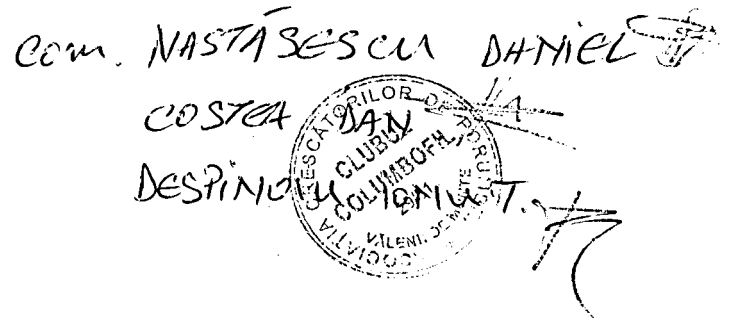 Com. NASTĂSESCU DANIEL
COSTEA DAN
DESPINOIU IONUT.
ASOCIAȚIA CRESCĂTORILOR DE PORUMBEI
CLUBUL
COLUMBOFIL
VĂLENII DE MUNTE